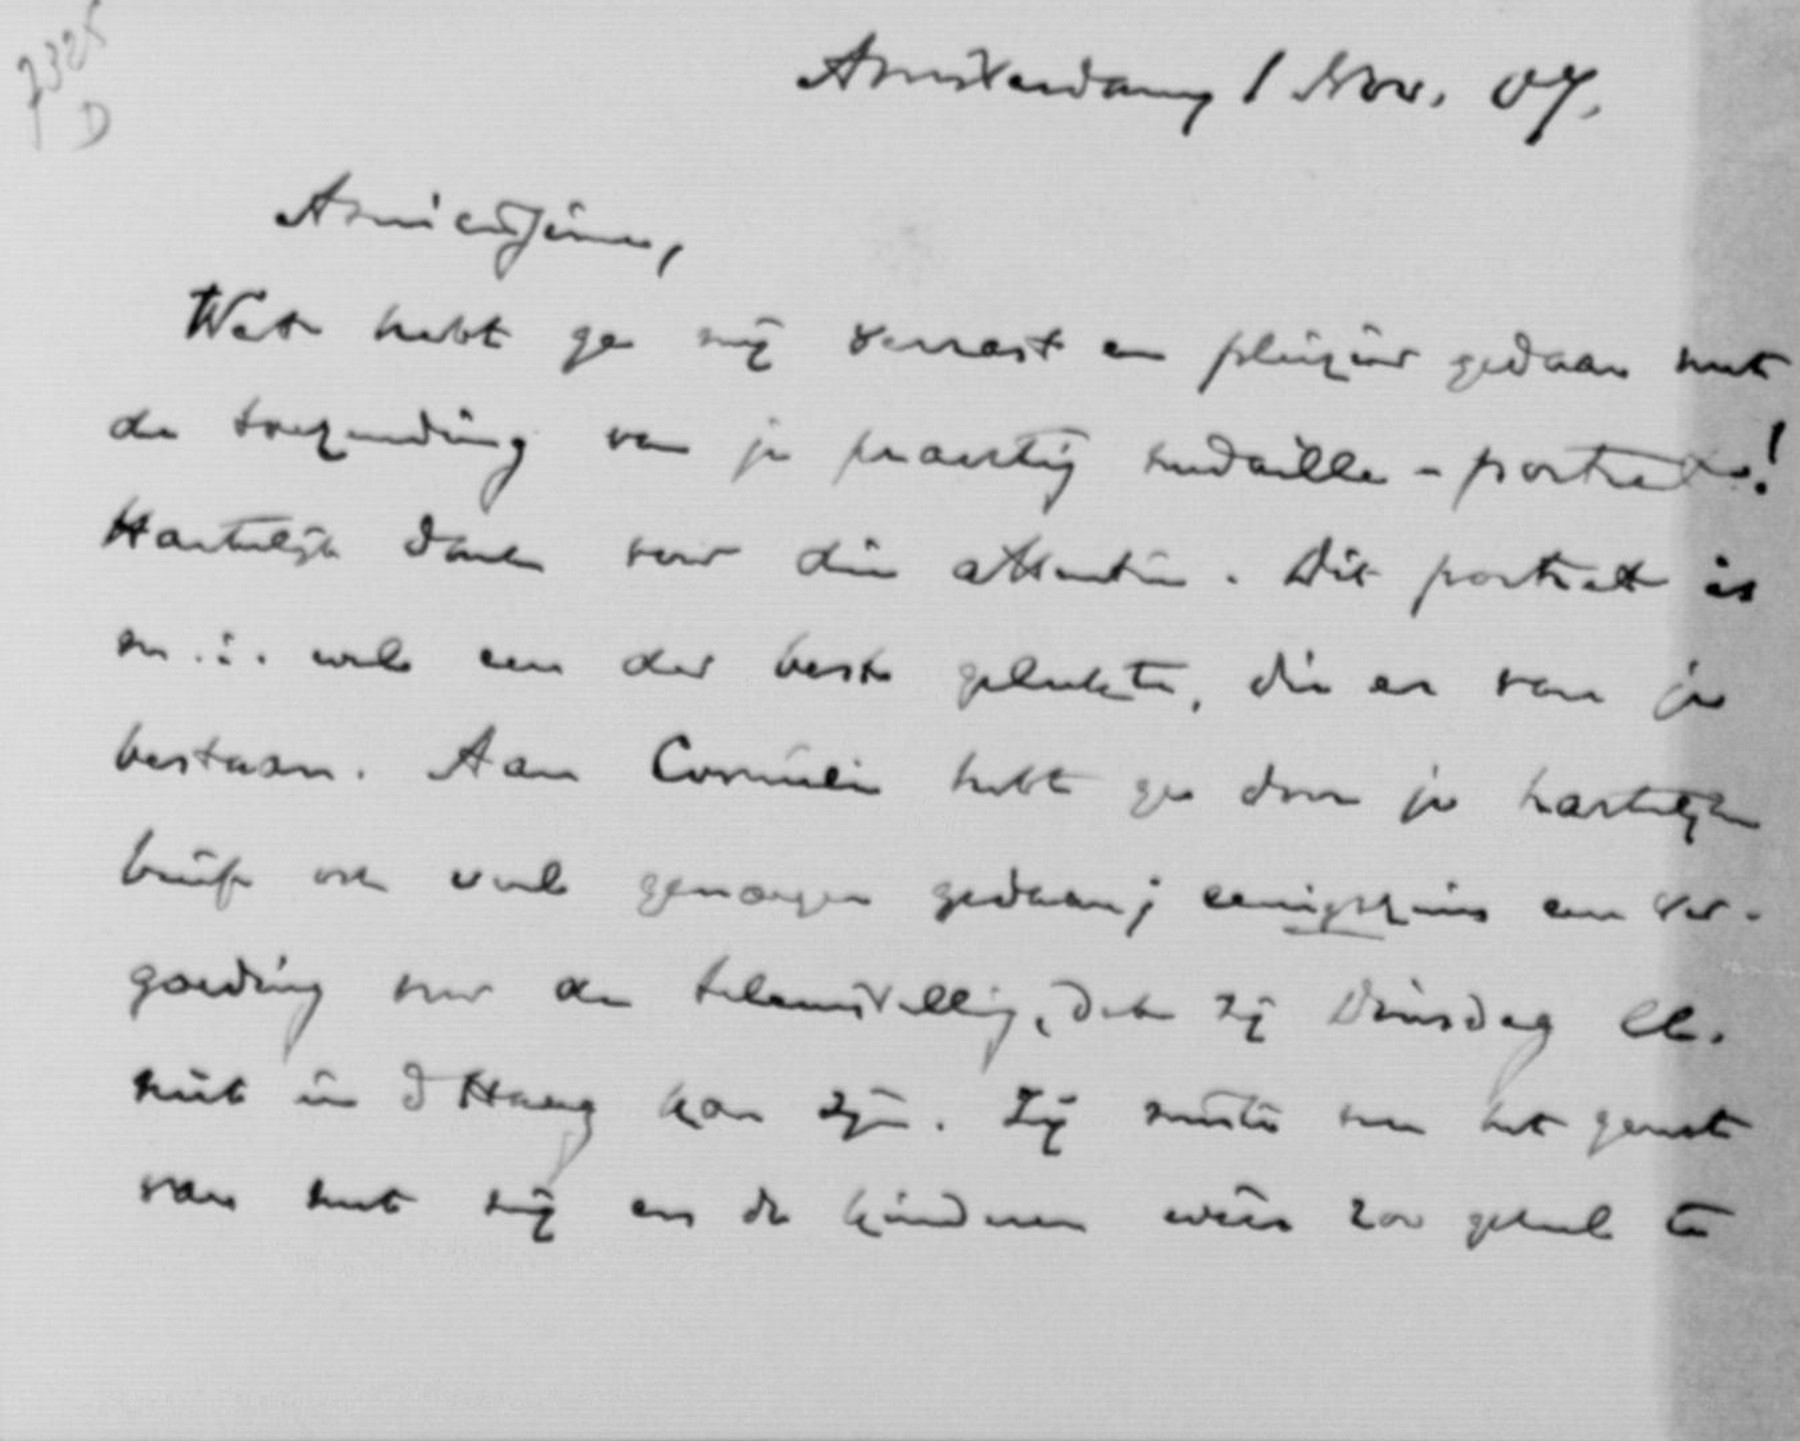 7325
D
Amsterdam 1 Nov. 07.
Amicissime,
Wat hebt ge mij verrast en pleizier gedaan met
de toezending van je prachtig medaille-portret!
Hartelijk dank voor die attentie. Dit portret is
m.i. wel een der beste gelukte, die er van je
bestaan. Aan Cornélie hebt ge door je hartelijken
brief ook veel genoegen gedaan; eenigszins een ver-
goeding voor de teleurstelling, dat zij Dinsdag ll.
niet in d Haag kon zijn. Zij miste nu het genot
van met mij en de kinderen weer zoo geheel te